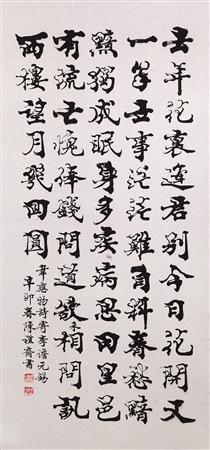 去年花裏逢君別今日花開又
一年世事茫茫難自料春愁黯
黯獨成眠身多疾病思田里邑
有流亡愧俸錢問道欲來相問訊
西樓望月幾回圓
韋應物詩寄李儋元錫
辛卯春陳齋書